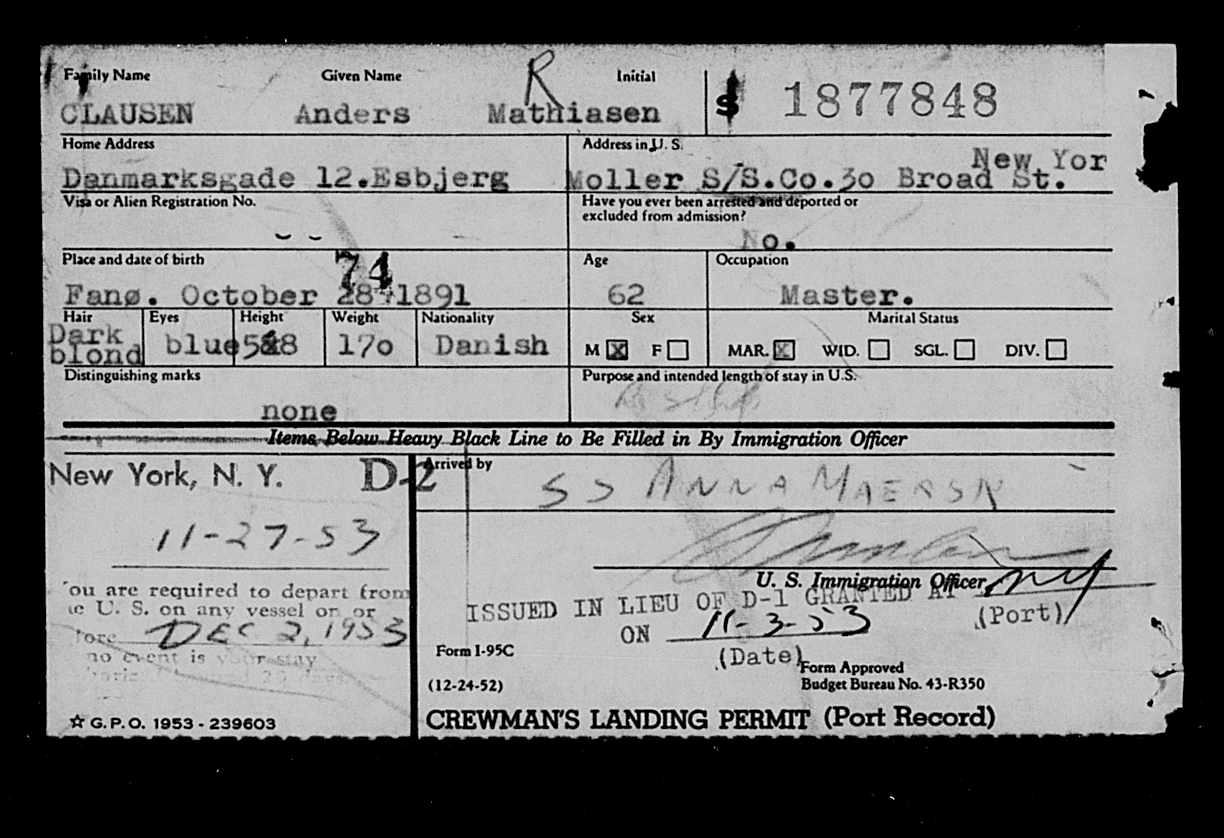 Family Name Given Name R Initial
CLAUSEN Anders Mathiasen 1877848
Home Address Address in U. S.
Danmarksgade 12.Esbjerg Moller S/S.Co.30 Broad St. New Yor
Visa or Alien Registration No. Have you ever been arrested and deported or
excluded from admission?
-- No.
Place and date of birth 74 Age Occupation
Fanø. October 28-1891 62 Master.
Hair Eyes Height Weight Nationality Sex Marital Status
Dark
blond blue 5 8 170 Danish M X F MAR. X WID. SGL. DIV.
Distinguishing marks Purpose and intended length of stay in U.S.
none
Items Below Heavy Black Line to Be Filled in By Immigration Officer
New York, N. Y. D-2 Arrived by
SS ANNA MAERSK
11-27-53
U. S. Immigration Officer
ou are required to depart from
e U. S. on any vessel on or
fore DEC 2, 1953
no event is your stay
29 days
ISSUED IN LIEU OF D-1 GRANTED AT NY
(Port)
ON 11-3-53
(Date)
Form I-95C
(12-24-52)
Form Approved
Budget Bureau No. 43-R350
☆ G.P.O. 1953-239603
CREWMAN'S LANDING PERMIT (Port Record)